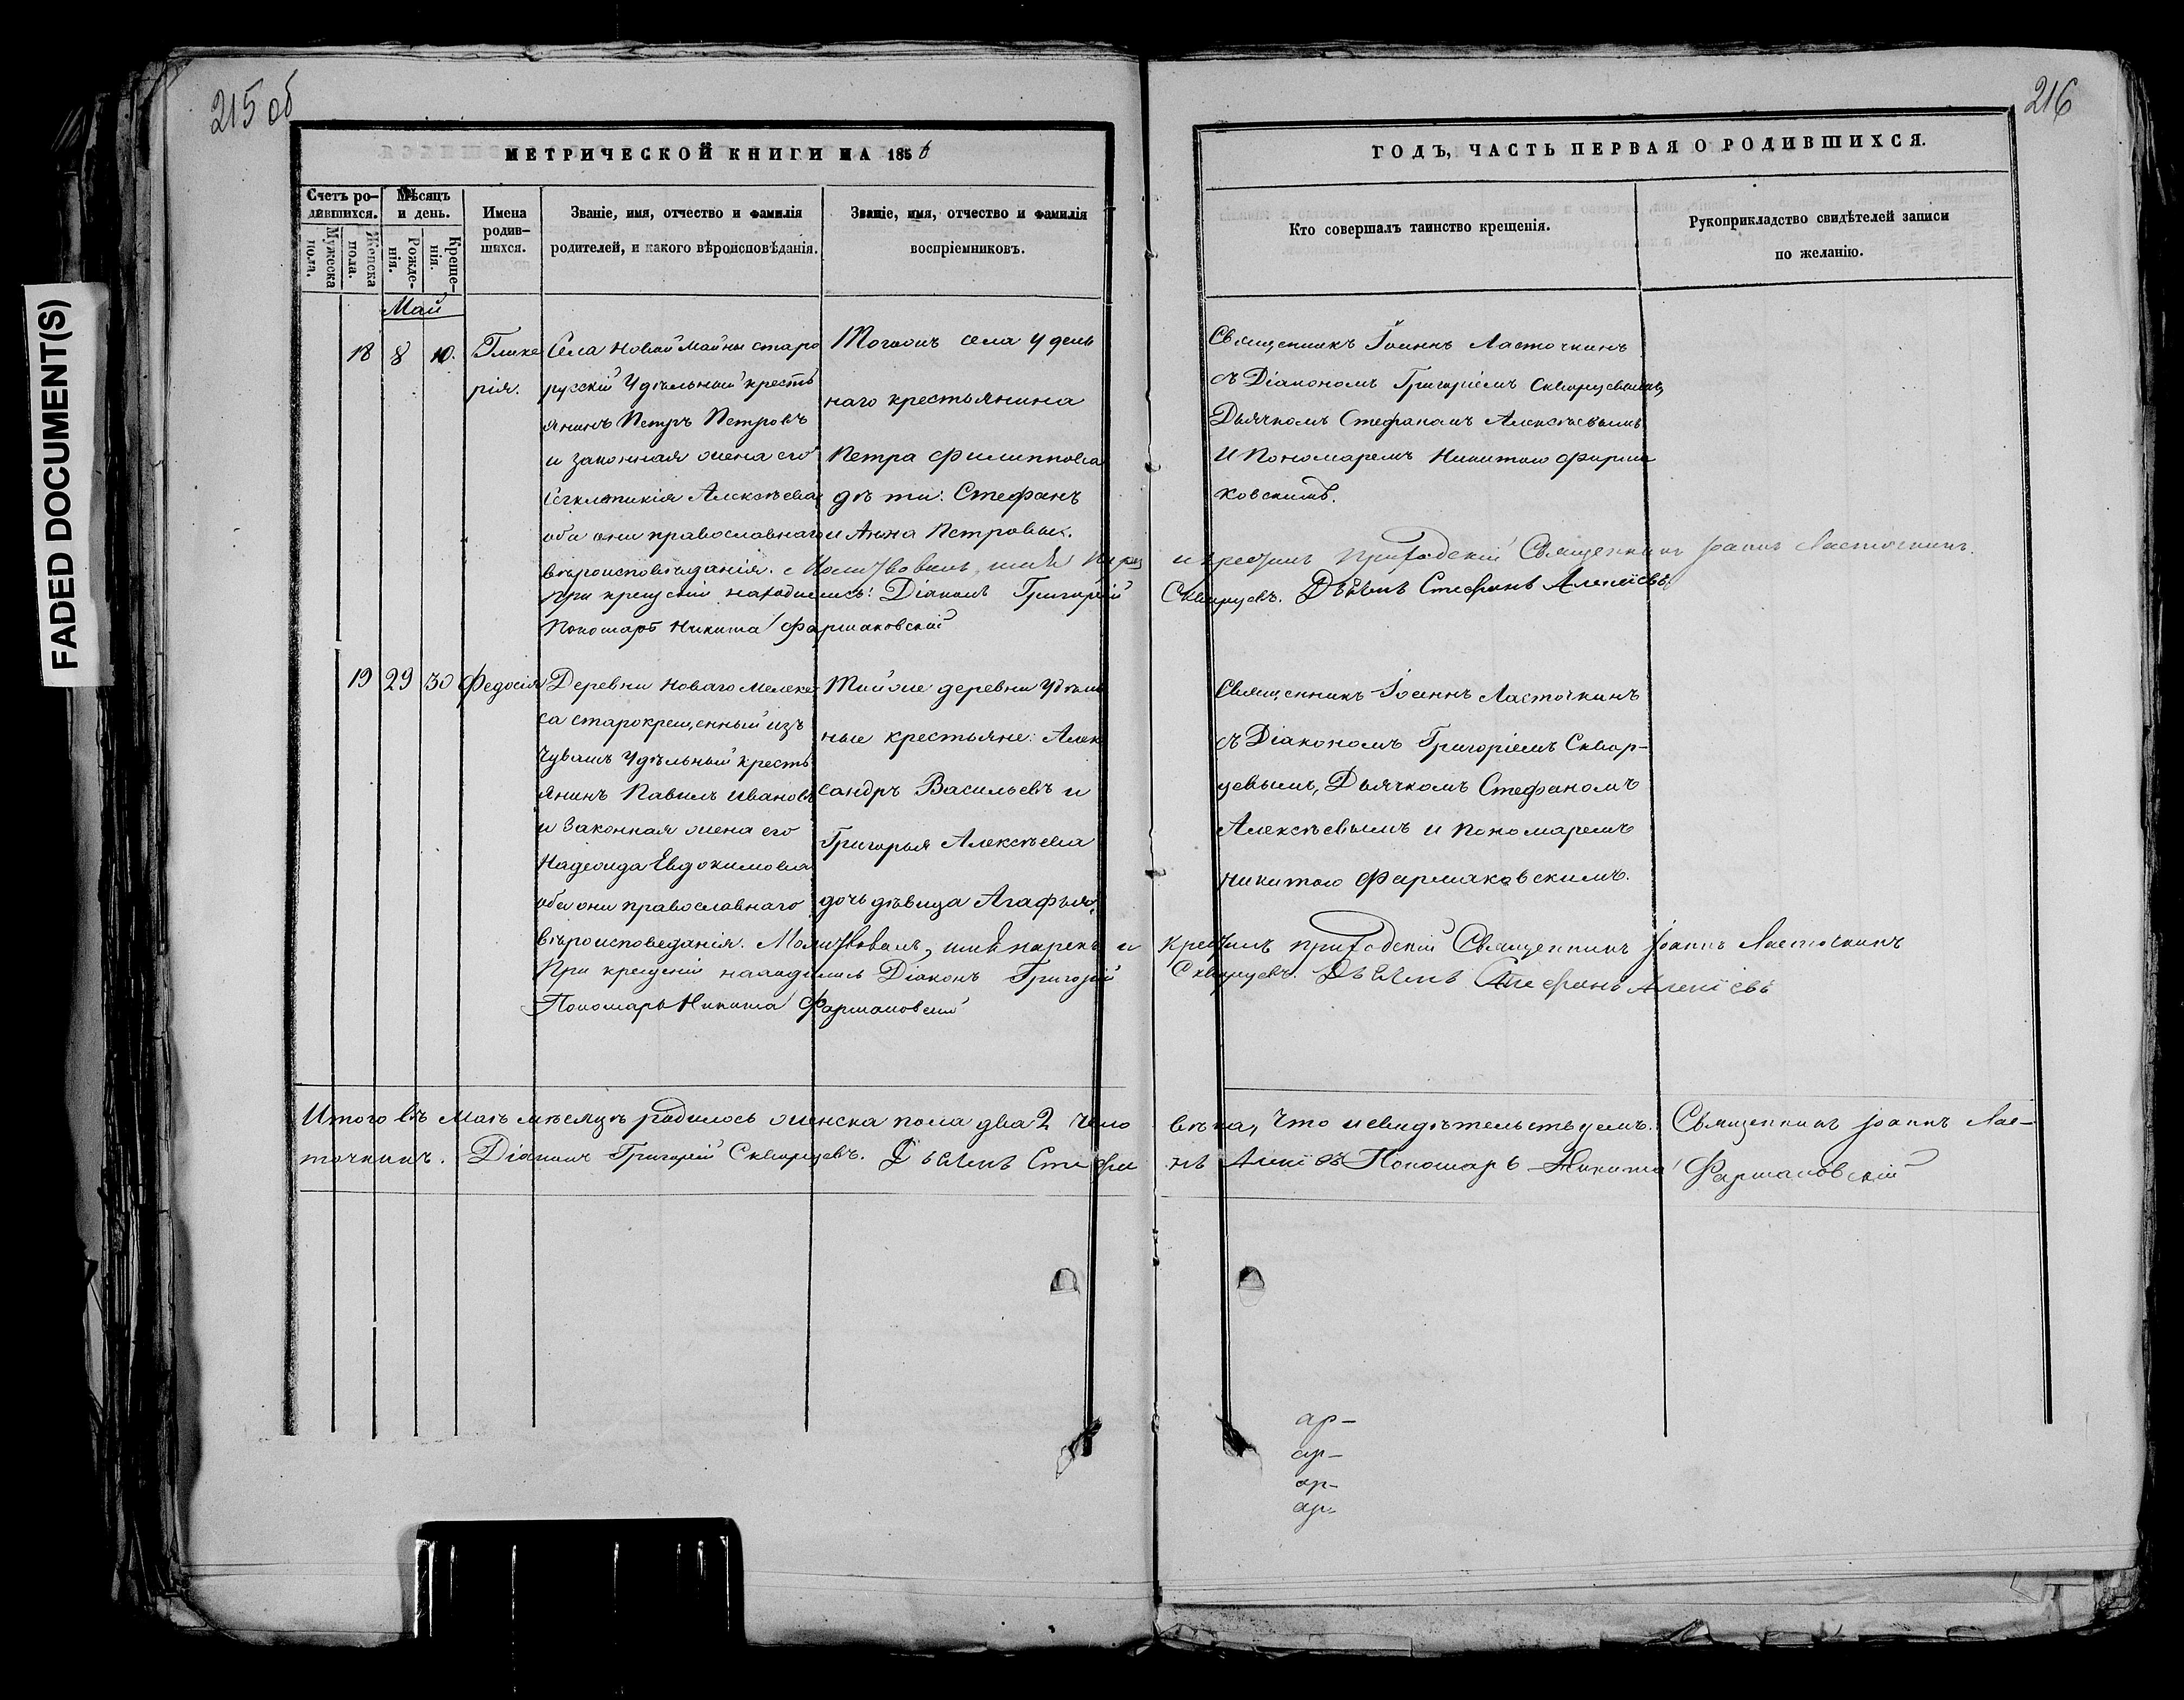 FADED DOCUMENT(S)
215 об
МЕТРИЧЕСКОЙ КНИГИ НА 1856
Счетъ ро-
дившихся.
Мужеска
пола.
Женска
пола.
Мѣсяцъ
и день.
Рожде-
нія.
Креще-
нія.
Имена
родив-
шихся.
Званіе, имя, отчество и фамилія
родителей, и какого вѣроисповѣданія.
Званіе, имя, отчество и фамилія
воспріемниковъ.
Май
18 8 10.
Глике
рія.
Села Новой Майны старо
русскій Удѣльный кресть
янинъ Петръ Петровъ
и законная жена его
Алексѣева
оба они православнаго
вѣроисповѣданія. Молитвовалъ, имя
При крещеніи находились: Діаконъ Григорій
Пономарь Никита Фармаковскій
Тогожъ села Удель
наго крестьянина
Петра Филиппова
дѣти: Стефанъ
и Анна Петровы.
19 29 30
Федосія
Деревни Новаго Мелеке
са старокрещенный изъ
Чувашъ Удѣльный кресть
янинъ Павелъ Ивановъ
и Законная жена его
Надежда Евдокимова
оба они православнаго
вѣроисповедания. Молитвовалъ, имя нарекъ и
При крещеніи находились Діаконъ Григорій
Пономарь Никита Фармаковскій
Тойже деревни Удель
ные крестьяне: Алек
сандръ Васильевъ и
Григорья Алексѣева
дочь дѣвица Агафья.
Итого въ Маѣ мѣсяцѣ родилось женска пола два 2 чело
точкинъ. Діаконъ Григорій Скворцевъ. Дьячекъ Стефа
216
ГОДЪ, ЧАСТЬ ПЕРВАЯ О РОДИВШИХСЯ.
Кто совершалъ таинство крещенія.
Рукоприкладство свидѣтелей записи
по желанію.
Священникъ Іоаннъ Ласточкинъ
съ Діакономъ Григоріемъ Скворцевымъ,
Дьячкомъ Стефаномъ Алексѣевымъ
И Пономаремъ Никитою Фарма
ковскимъ.
и крестилъ приходскій Священникъ Іоаннъ Ласточкинъ.
Скворцевъ. Дьячекъ Стефанъ Алексіевъ
Священникъ Іоаннъ Ласточкинъ
съ Діакономъ Григоріемъ Сквор-
цевымъ, Дьячкомъ Стефаномъ
Алексѣевымъ и Пономаремъ
Никитою Фармаковскимъ.
крестилъ приходскій Священникъ Іоаннъ Ласточкинъ
Скворцевъ. Дьячекъ Стефанъ Алексіевъ
вѣка, Что и свидѣтельствуемъ. Священникъ Іоаннъ Лас-
нъ Пономарь Никита Фармаковскій
ар-
ар-
ар-
ар-